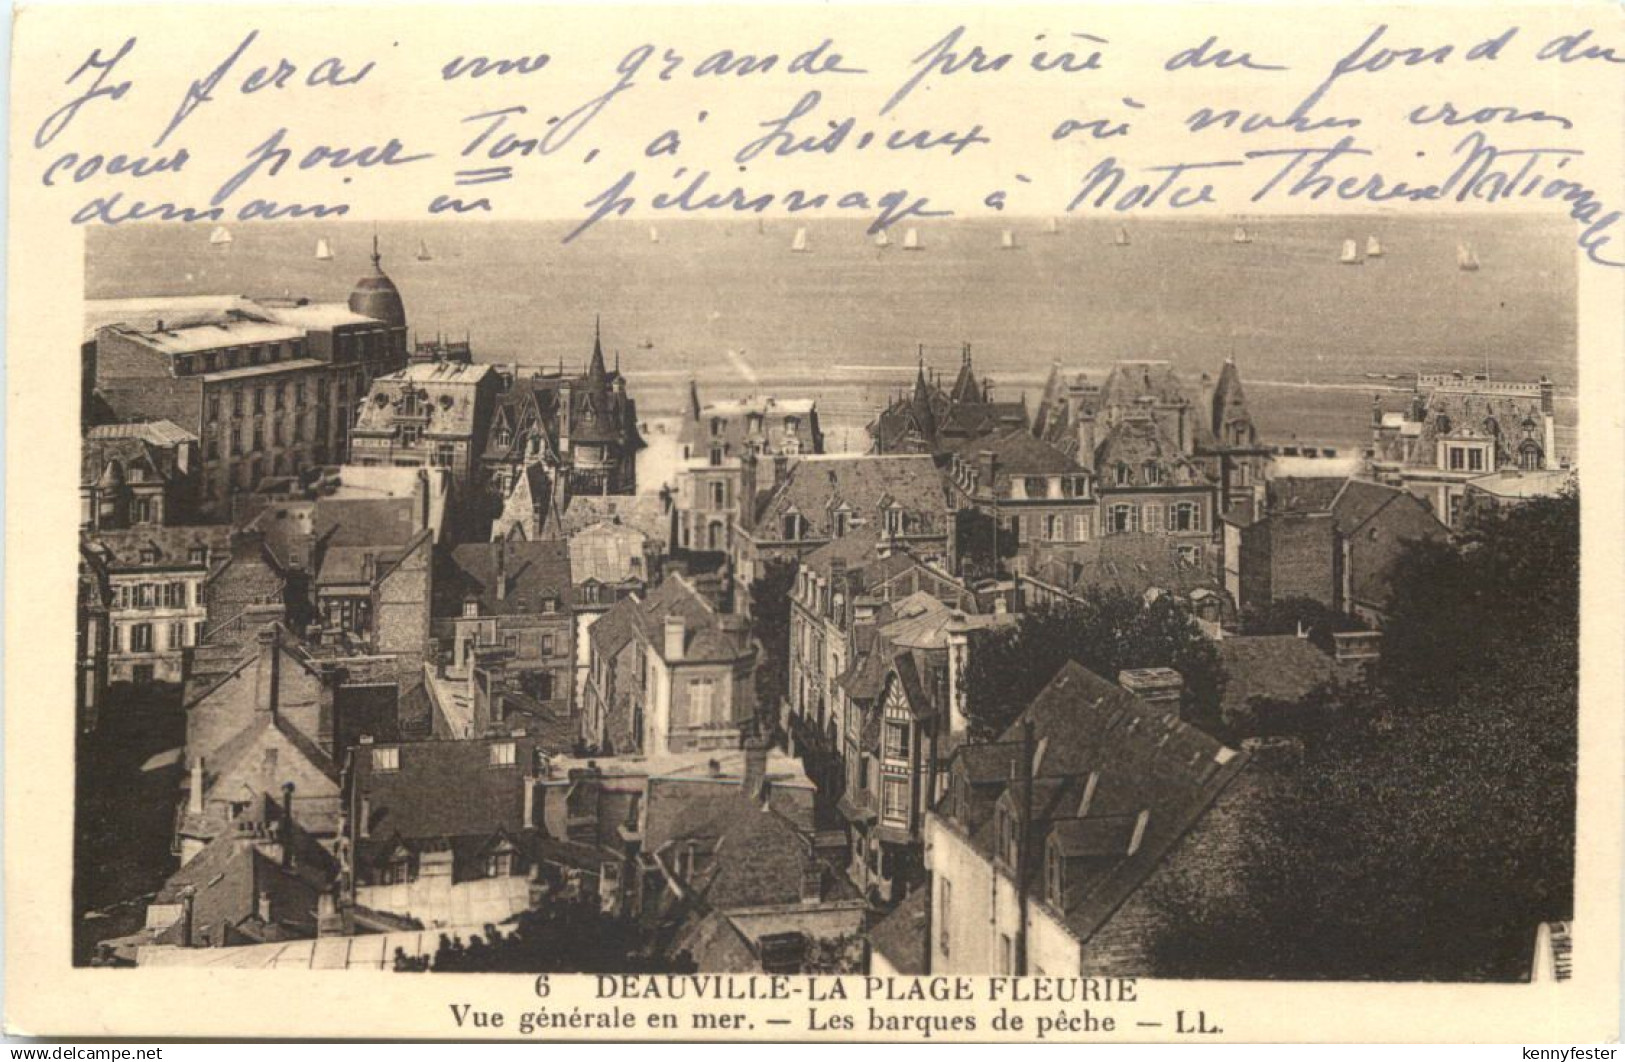 Je ferai une grande prière du fond du
coeur pour Toi, à Lisieux où nous irons
demain en pélérinage à Notre Thérèse Nationale
6 DEAUVILLE-LA PLAGE FLEURIE
Vue générale en mer. — Les barques de pêche — LL.
www.delcampe.net
kennyfester